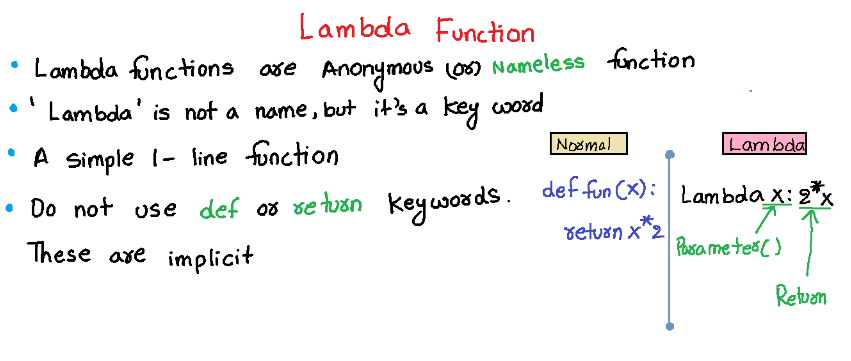 Lambda Function
• Lambda functions are Anonymous (or) Nameless function
• 'Lambda' is not a name, but it's a key word
• A simple 1-line function
• Do not use def or return keywords.
These are implicit
Normal
def fun(x):
return x*2
Lambda
Lambda x: 2*x
Parameter()
Return